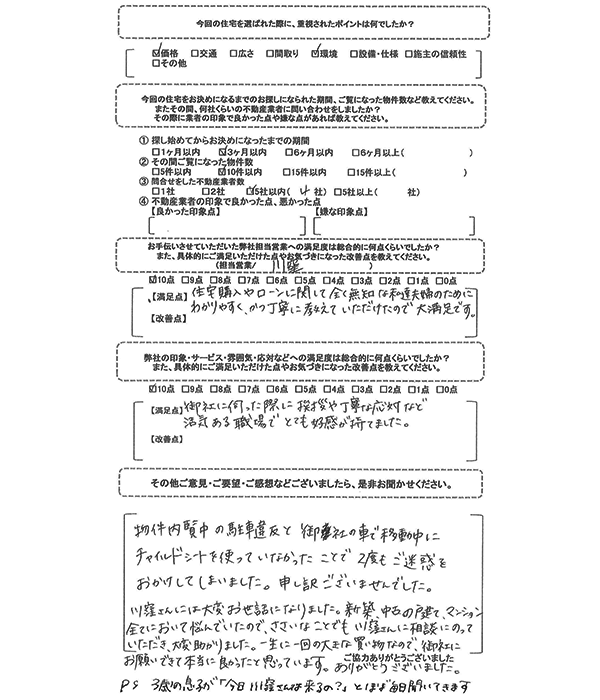 今回の住宅を選ばれた際に、重視されたポイントは何でしたか?
☑価格 □交通 □広さ □間取り ☑環境 □設備・仕様 □施主の信頼性
□その他
今回の住宅をお決めになるまでのお探しになられた期間、ご覧になった物件数など教えてください。
またその間、何社くらいの不動産業者に問い合わせをしましたか?
その際に業者の印象で良かった点や嫌な点があれば教えてください。
① 探し始めてからお決めになったまでの期間
□1ヶ月以内 ☑3ヶ月以内 □6ヶ月以内 □6ヶ月以上( )
② その間ご覧になった物件数
□5件以内 ☑10件以内 □15件以内 □15件以上( )
③ 問合せをした不動産業者数
□1社 □2社 ☑5社以内( 4 社) □5社以上( 社)
④ 不動産業者の印象で良かった点、悪かった点
【良かった印象点】 【嫌な印象点】
お手伝いさせていただいた弊社担当営業への満足度は総合的に何点くらいでしたか?
また、具体的にご満足いただけた点やお気づきになった改善点を教えてください。
(担当営業/ 川窪 )
☑10点 □9点 □8点 □7点 □6点 □5点 □4点 □3点 □2点 □1点 □0点
【満足点】住宅購入やローンに関して全く無知な私達夫婦のために
わかりやすく、かつ丁寧に教えていただけたので大満足です。
【改善点】
弊社の印象・サービス・雰囲気・応対などへの満足度は総合的に何点くらいでしたか?
また、具体的にご満足いただけた点やお気づきになった改善点を教えてください。
☑10点 □9点 □8点 □7点 □6点 □5点 □4点 □3点 □2点 □1点 □0点
【満足点】御社に伺った際に挨拶や丁寧な応対など
活気ある職場でとても好感が持てました。
【改善点】
その他ご意見・ご要望・ご感想などございましたら、是非お聞かせください。
物件内覧中の駐車違反と御社の車で移動中に
チャイルドシートを使っていなかったことで2度もご迷惑を
おかけしてしまいました。申し訳ございませんでした。
川窪さんには大変お世話になりました。新築、中古の戸建て、マンション
全てにおいて悩んでいたので、ささいなことでも川窪さんに相談にのって
いただき、大変助かりました。一生に一回の大きな買い物なので、御社に
お願いできて本当に良かったと思っています。ありがとうございました。
ご協力ありがとうございました
PS 3歳の息子が「今日川窪さんは来るの?」とほぼ毎日聞いてきます